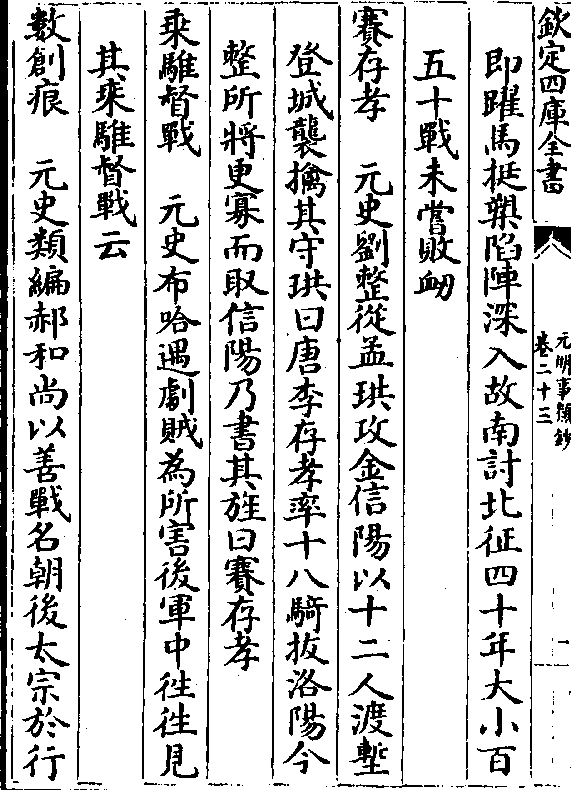 欽定四庫全書
元明事類鈔
卷二十三
即躍馬挺槊陷陣深入故南討北征四十年大小百
五十戰未嘗敗衂
賽存孝　元史劉整從孟珙攻金信陽以十二人渡塹
登城襲擒其守珙曰唐李存孝率十八騎拔洛陽今
整所將更寡而取信陽乃書其旌曰賽存孝
乘騅督戰　元史布哈遇劇賊為所害後軍中徃徃見
其乘騅督戰云
數創痕　元史類編郝和尚以善戰名朝後太宗於行